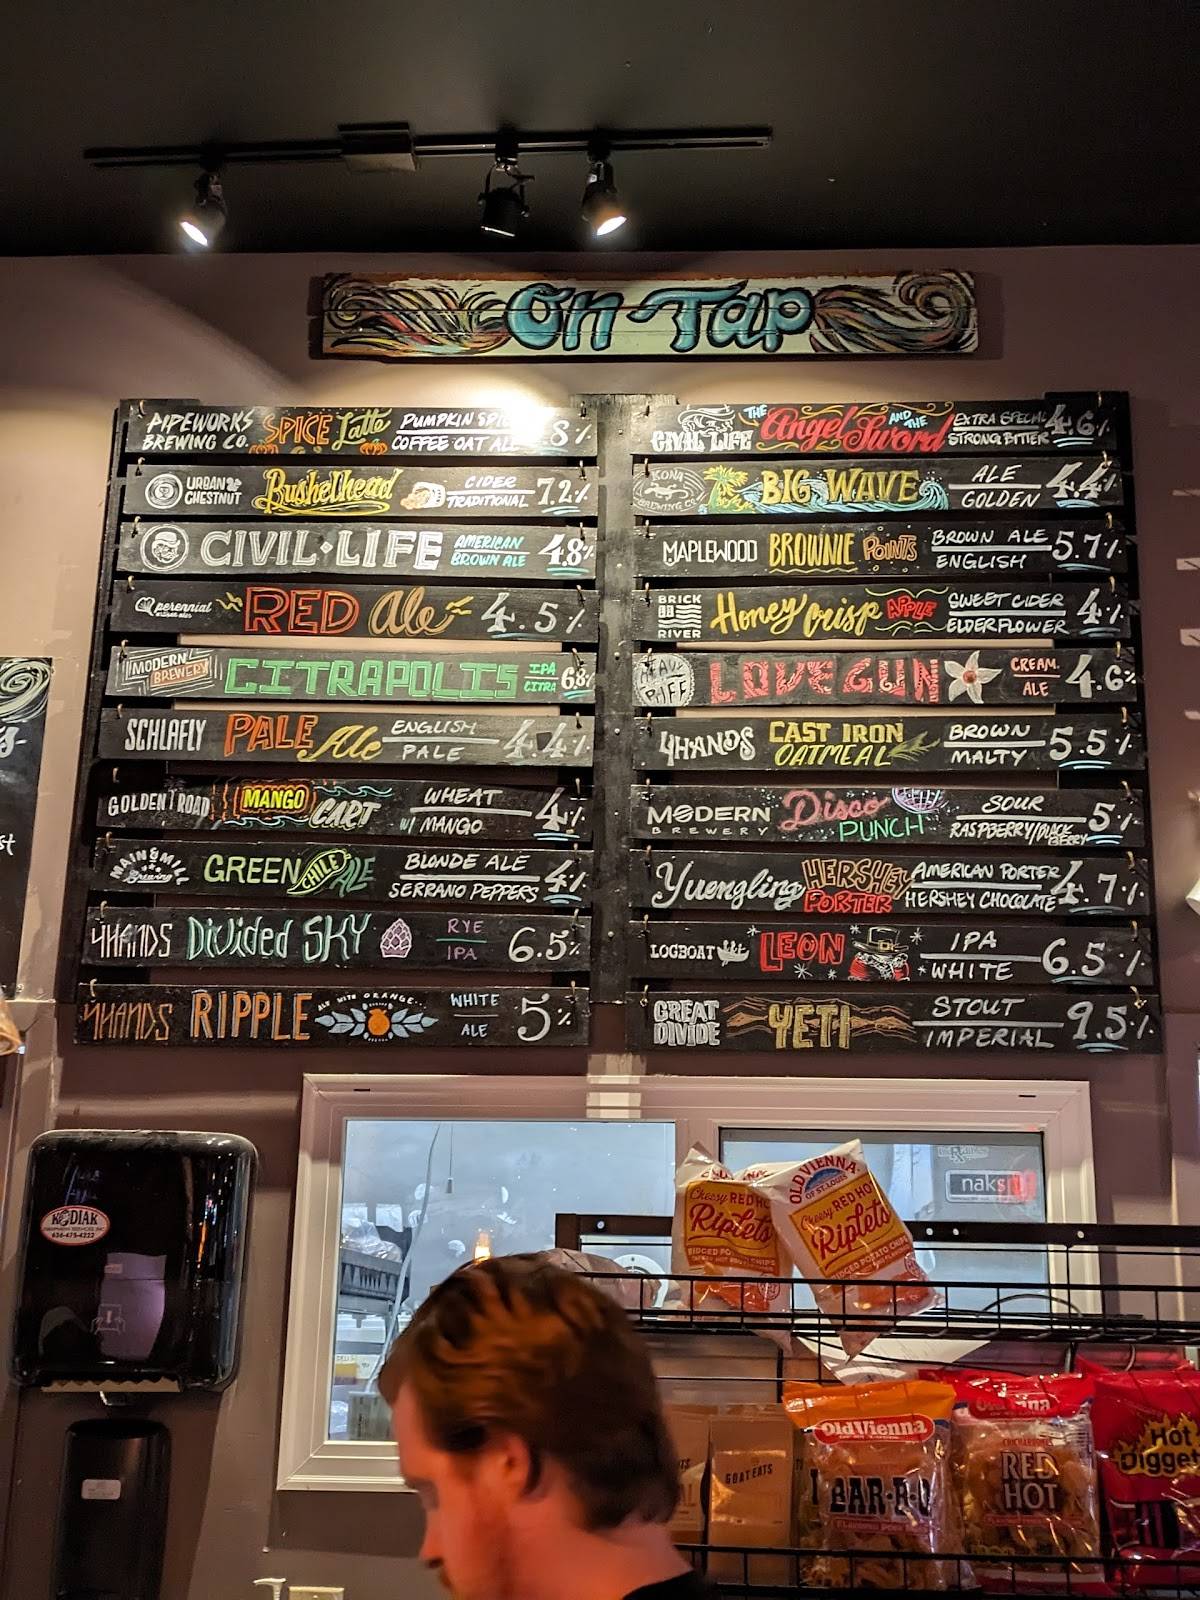 On-Tap
PIPEWORKS BREWING CO. SPICE Latte PUMPKIN COFFEE OAT 8%
URBAN CHESTNUT Bushelhead CIDER TRADITIONAL 7.2%
CIVIL·LIFE AMERICAN BROWN ALE 4.8%
perennial RED Ale 4.5%
MODERN BREWERY CITRAPOLIS IPA CITRA 6.8%
SCHLAFLY PALE Ale ENGLISH PALE 4.4%
GOLDEN ROAD MANGO CART WHEAT W/ MANGO 4%
MAIN & MILL Brewing GREEN CHILE ALE BLONDE ALE SERRANO PEPPERS 4%
4HANDS DIVIDED SKY RYE IPA 6.5%
4HANDS RIPPLE ALE WITH ORANGE... WHITE ALE 5%
CIVIL LIFE THE Angel AND THE Sword EXTRA SPECIAL STRONG BITTER 4.6%
KONA BREWING CO. BIG WAVE ALE GOLDEN 4.4%
MAPLEWOOD BROWNIE POINTS BROWN ALE ENGLISH 5.7%
BRICK RIVER Honey Crisp APPLE SWEET CIDER ELDERFLOWER 4%
HEAVY RIFF LOVE GUN CREAM. ALE 4.6%
4HANDS CAST IRON OATMEAL BROWN MALTY 5.5%
MODERN BREWERY Disco PUNCH SOUR RASPBERRY/ 5%
Yuengling HERSHEY PORTER AMERICAN PORTER HERSHEY CHOCOLATE 4.7%
LOGBOAT LEON IPA WHITE 6.5%
GREAT DIVIDE YETI STOUT IMPERIAL 9.5%
KODIAK
636-475-4222
naks
Cheesy RED HO
Riplets
OLD VIENNA
OF ST. LOUIS
Cheesy RED HOT
Riplets
RIDGED POTATO CHIPS
GOAT EATS
Old Vienna
BAR-B-Q
RED HOT
Hot Digger